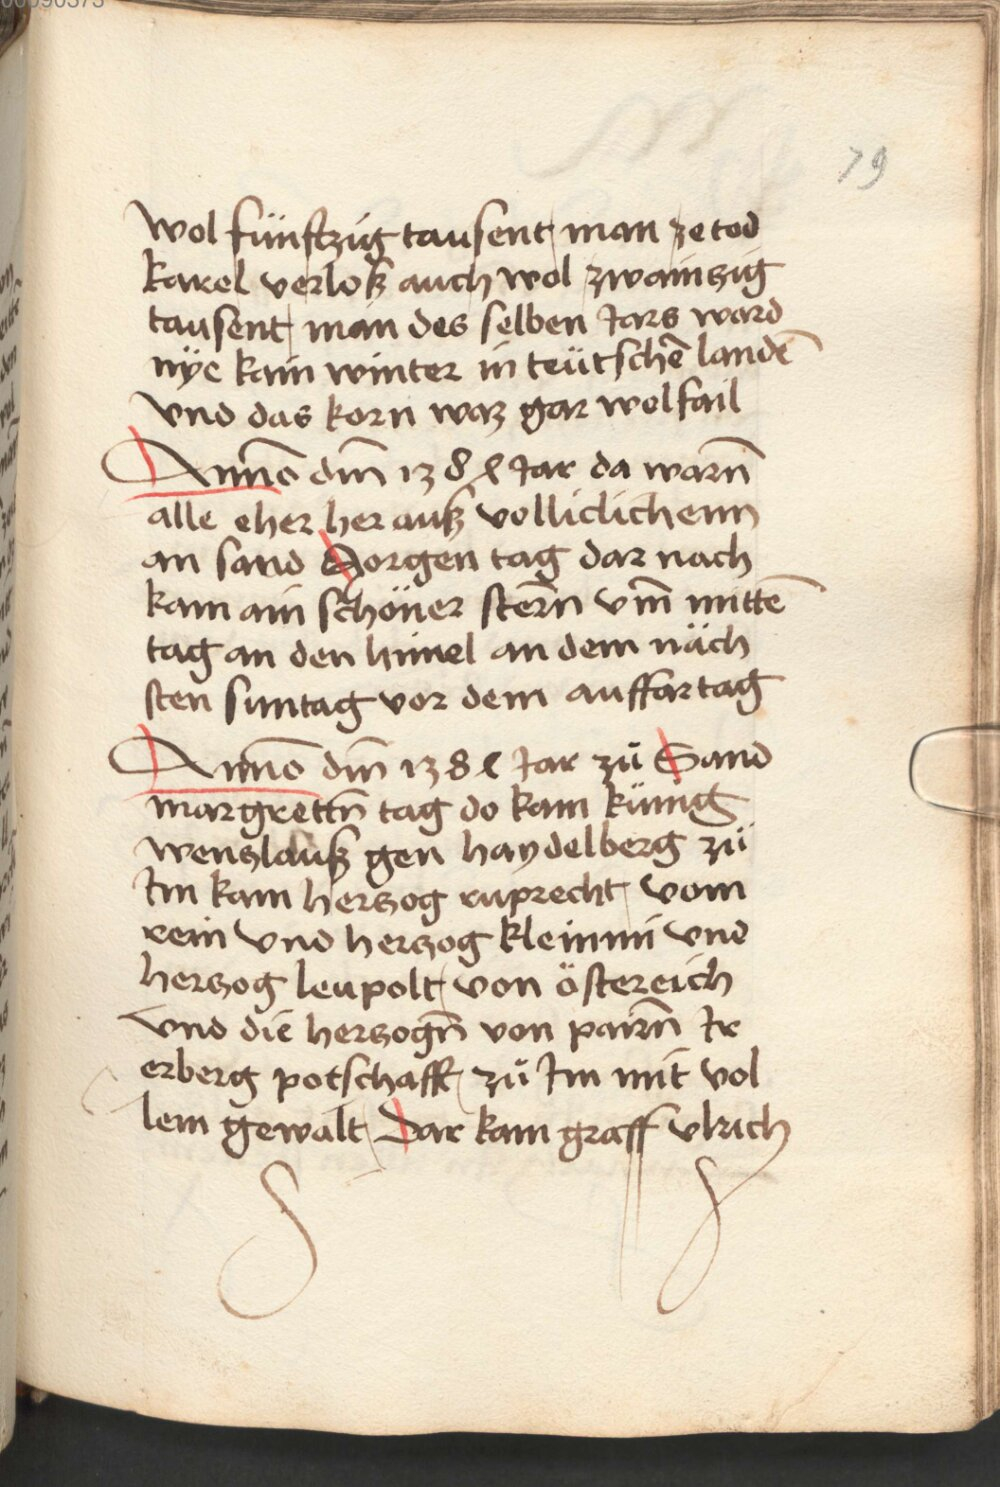 79
wol fünftzig tausent man ze tod
karel verloß auch wol zwainzig
tausent man des selben Jars ward
nÿe kain winter in teütschē landē
vnd das korn waz gar wolfail
Anno dm̄ 138ꝭ Jar da warn̄
alle eher her auß volliclichenn
an sand Jorgen tag dar nach
kam ain schöner stern̄ vm̄ mittē
tag an den himel an dem näch
sten suntag vor dem auffartag
Anno dm̄ 138ꝭ Jar zů Sand
margrettn̄ tag do kam künig
wenzlauß gen haydelberg zů
Im kam herzog ruprecht vom
rein vnd herzog kleinmi vnd
herzog leupolt von östereich
vnd die herzogn̄ von pairn̄ Ir
erberg potschafft zů Im mit vol
lem gewalt Dar kam graff vlrich